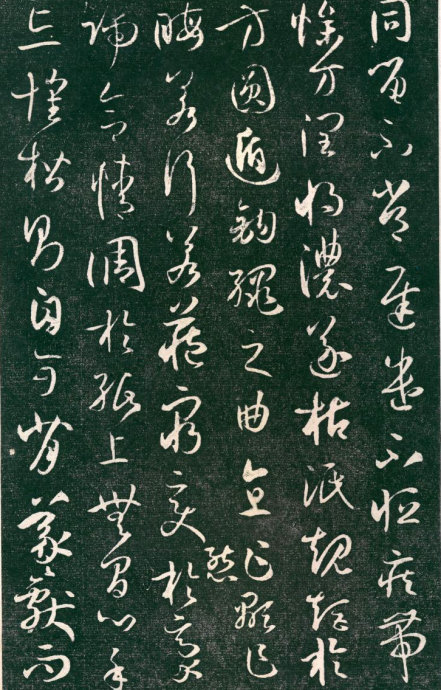 同留不常遲遣不恒疾帶
燥方潤將濃遂枯泯規矩於
方圓遁鉤繩之曲直乍顯乍
晦若行若藏窮變態於毫
端合情調於紙上無間心手
忘懷楷則自可背羲獻而